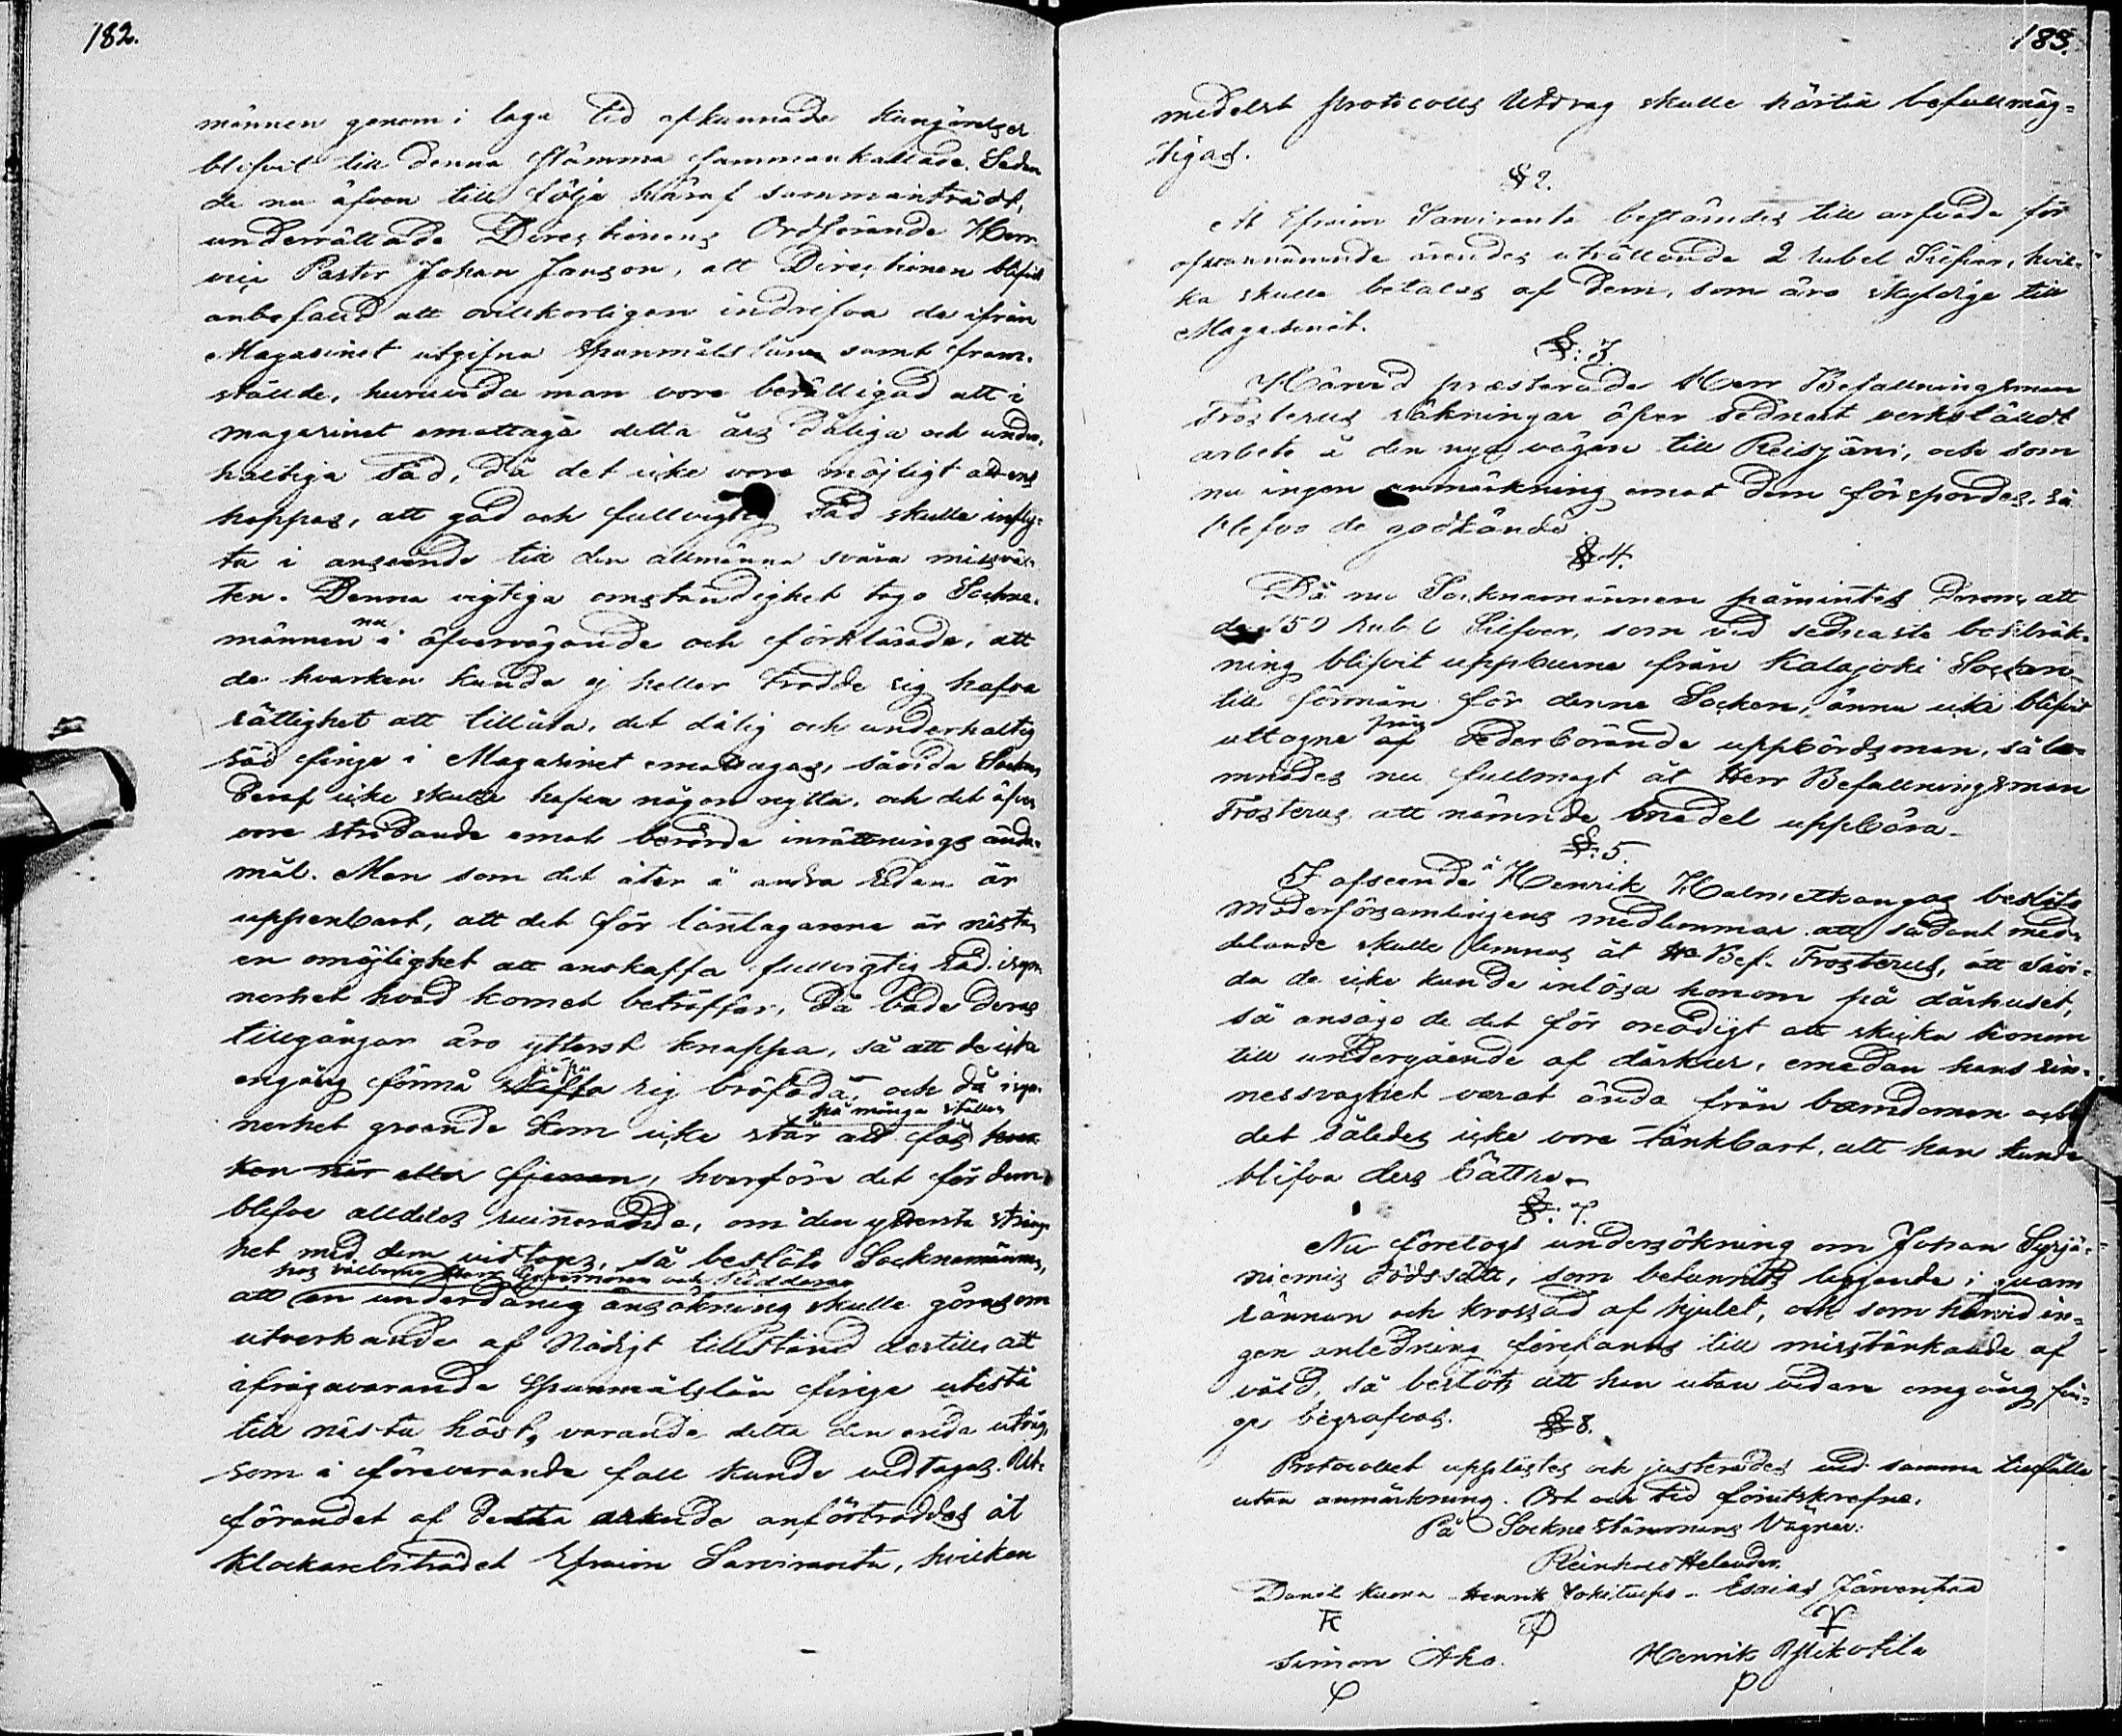 182.
männen genom i laga tid afkunnade Kungörelser
blifvit till denna Stämma sammankallade. Sedan
de nu äfven till följe häraf sammanträdt,
underrättade Direcktionens Ordförande Herr
vice Pastor Johan Janson, att Direcktionen blifvit
anbefalld att ovilkorligen indrifva de ifrån
Magasinet utgifna Spanmålslån samt fram-
ställde, huruvida man vore berättigad att i
magasinet emottaga detta års dåliga och under-
haltiga säd, då det icke vore möjligt att ens
hoppas, att god och fullvigtig säd skulle infly-
ta i anseende till den allmänna svåra missväx-
ten. Denna vigtiga omständighet togo Sockne-
männen nu i öfvervägande och förklarade, att
de hvarken kunde ej heller trodde sig hafva
rättighet att tillåta, det dålig och underhaltig
säd finge i Magasinet emottagas, såvida Socknen
deraf icke skulle hafva någon nytta, och det äfven
vore stridande emot berörde inrättnings ända-
mål. Men som det åter å andra sidan är
uppenbart, att det för låntagarene är nästan
en omöjlighet att anskaffa fullvigtig säd, i syn-
nerhet hvad kornet beträffar, då både deras
tillgångar äro ytterst knappa, så att de icke
engång förmå skaffa sig bröföda, och då i syn-
nerhet groende korn icke står att fås på många ställen
ken här eller fjerran, hvarföre det för dem
blefve alldeles ruinerande, om den yttersta sträng-
het med dem vidtoges, så beslöto Socknemännen,
hos välborne Herr Guvernören och Riddaren
att en underdånig ansökning skulle göras om
utverkande af Nådigt tillstånd dertill, att
ifrågavarande Spanmålslån finge utestå
till nästa höst, varande detta den enda utväg,
som i förevarande fall kunde vidtagas. Ut-
förandet af detta ärende anförtroddes åt
Klockarebiträdet Efraim Sarviranta, hvilken
183.
medelst Protocolls Utdrag skulle härtill befullmäg-
tigas.
§ 2.
At Efraim Sarviranta bestämdes till arfvode för
ofvannämnde ärendes uträttande 2 rubel Silfver, hvil-
ka skulle betalas af dem, som äro skyldige till
Magasinet.
§: 3.
Härvid presterade Herr Befallningsman
Frosterus räkningar öfver sednast verkställdt
arbete å den nya vägen till Reisjärvi, och som
nu ingen anmärkning emot dem förspordes, så
blefvo de godkände
§ 4.
Då nu Socknemännen påmintes derom, att
de 150 Rub. Silfver, som vid sednaste boskräk-
ning blifvit uppburne från Kalajoki Socken
till förmån för denne Socken, ännu icke blifvit
uttagne från af vederbörande uppbördsman, så läm-
nades nu fullmagt åt Herr Befallningsman
Frosterus att nämnde medel uppbära.
§: 5.
I afseende å Henrik Halmetkangas beslöto
Moderförsamlingens medlemmar att sådant med-
delande skulle lemnas åt Hr Bef. Frosterus, att såvi-
da de icke kunde inlösa honom på dårhuset,
så ansågo de det för onödigt att skicka honom
till undergående af dårkur, emedan hans sin-
nessvaghet varat ända från barndomen och
det således icke vore tänkbart, att han kunde
blifva ders bättre.
§: 7.
Nu företogs undersökning om Johan Syrjä-
niemis dödssätt, som befunnits liggande i quarn
rännan och krossad af hjulet, och som härvid in-
gen anledning förefanns till misstänkande af
våld, så beslöts att han utan vidare omgång fin-
ge begrafvas.
§ 8.
Protocollet upplästes och justerades vid samma tillfälle
utan anmärkning. Ort och tid förutskrefne.
På Sockne Stämmans Vägnar:
Reinhold Helander.
Daniel Kuona Henrik Jokitulppo - Esaias Järvenpää
Simon Aho. Henrik Pylikotila